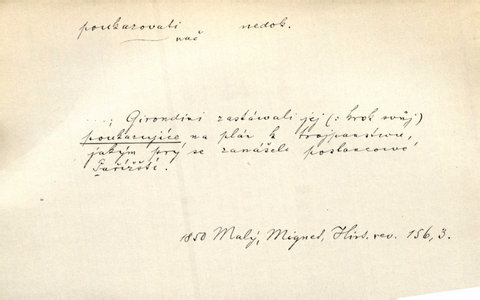 poukazovati nedok.
nač
....; Girondini zastávali jej (: krok svůj)
poukazujíce na plán k trojpanstvu,
jakým prý se zanášela poslancové
Pařížští.
1850 Malý, Mignet, Hist. rev. 156, 3.